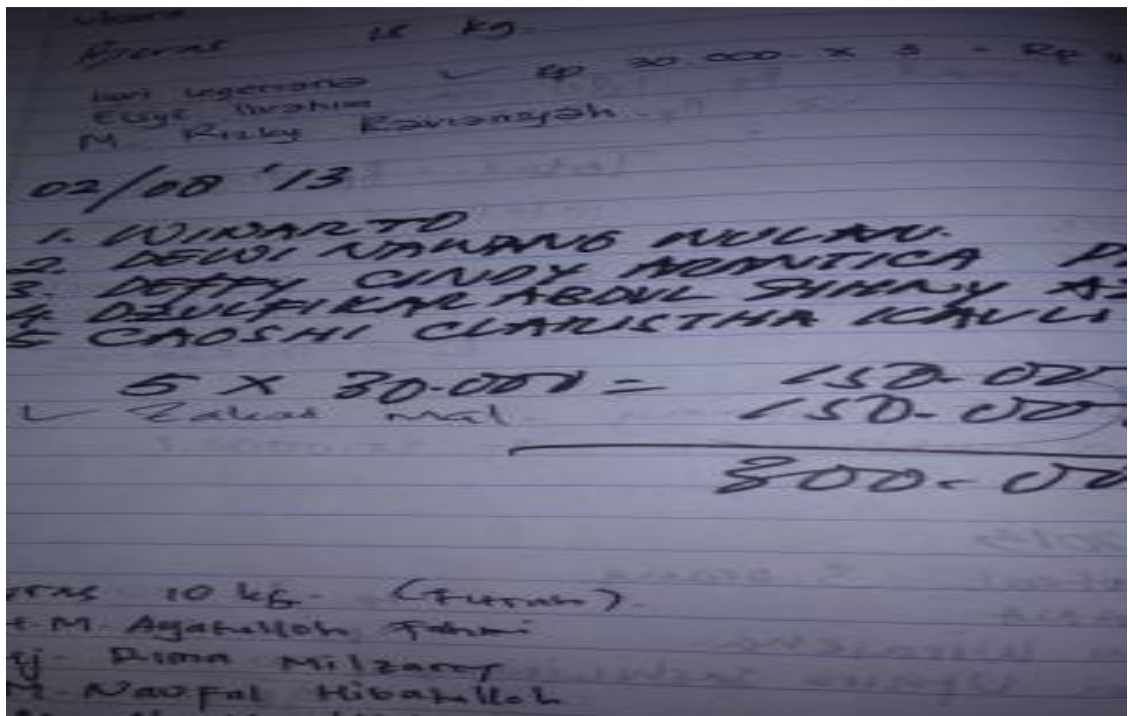 Beras 15 kg.
Hari Legersana ✓ Rp 30.000 x 3 = Rp
Elsye Ibrahim
M. Rizky Raviansyah
02/08 '13
1. WINARTO
2. DEWI NAWANG WULAN.
3. DEFFY CINDY ARANTICA
4. DZULFIKAR ABDUL
5 CAOSHI CLARISTHA
5 X 30.000 = 150.000
✓ Zakat Mal. 150.000
300.00
10 kg. (Fitrah).
H.M. Ayatulloh Fahmi
Hj. Rima Milzamy
M. Naufal Hibatulloh